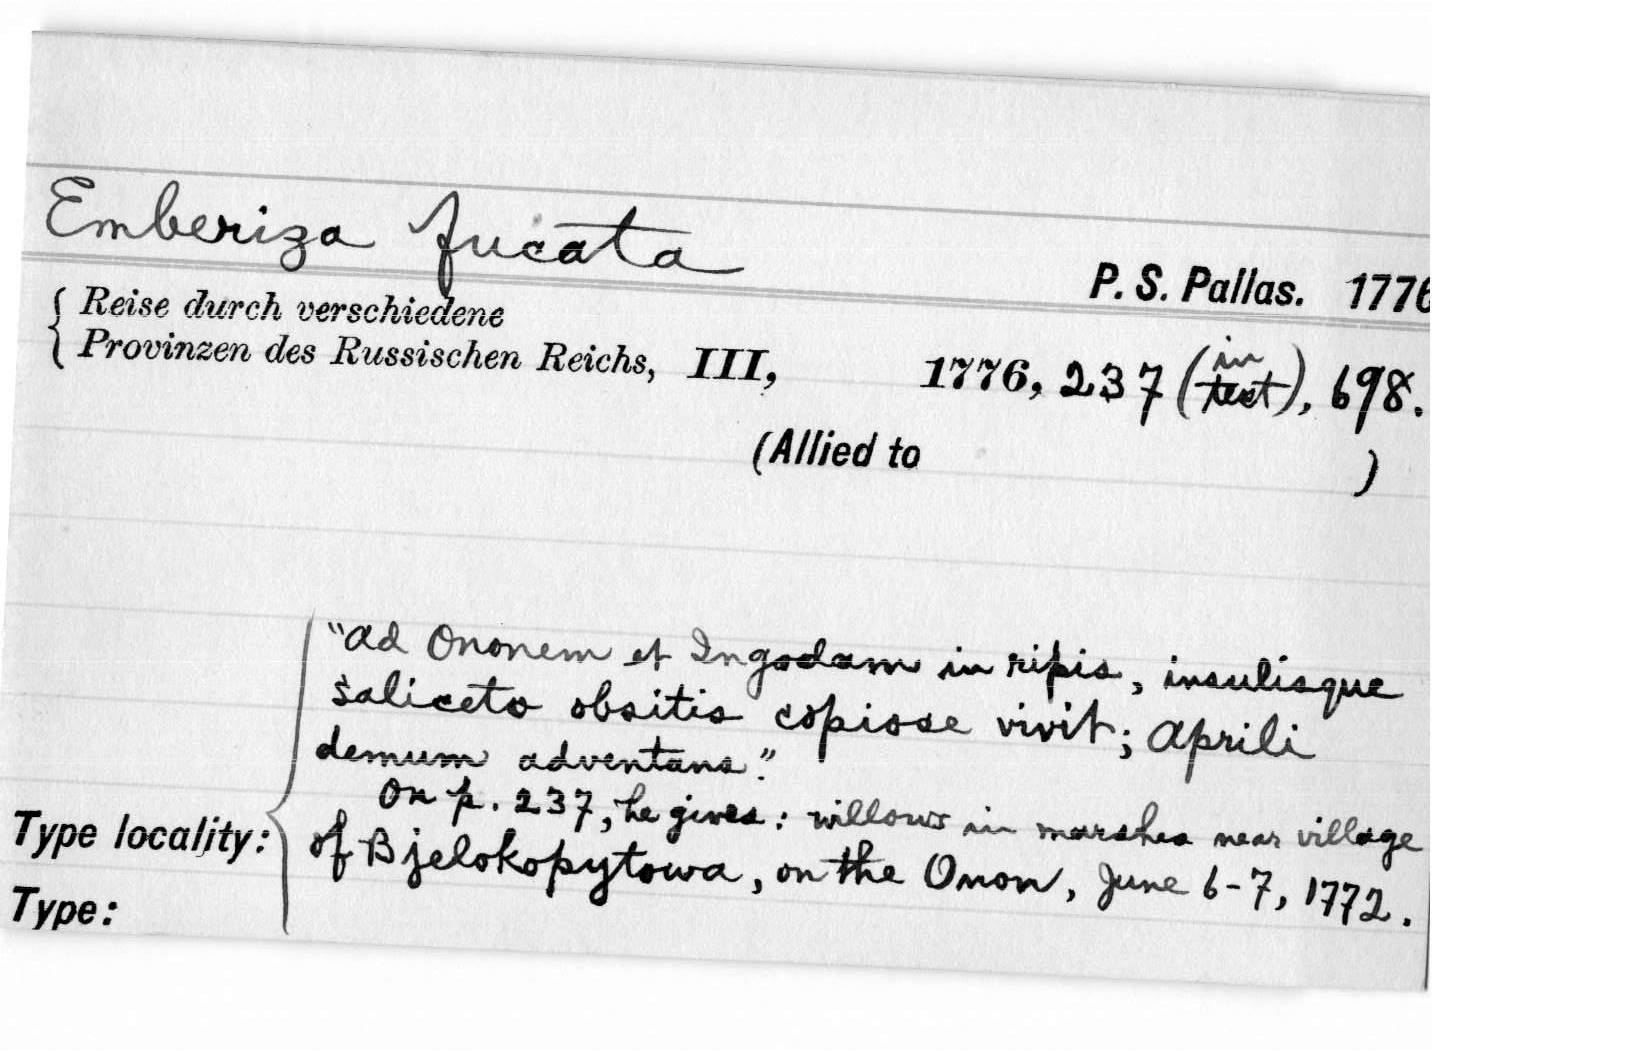 Emberiza fucata
P. S. Pallas. 1776
Reise durch verschiedene
Provinzen des Russischen Reichs, III, 1776, 237 (in text), 698.
(Allied to )
"ad Ononem et Ingodam in ripis, insulisque
saliceto obsitis copiose vivit; Aprili
demum adventans."
On p. 237, he gives: willows in marshes near village
of Bjelokopytowa, on the Onon, June 6-7, 1772.
Type locality:
Type: